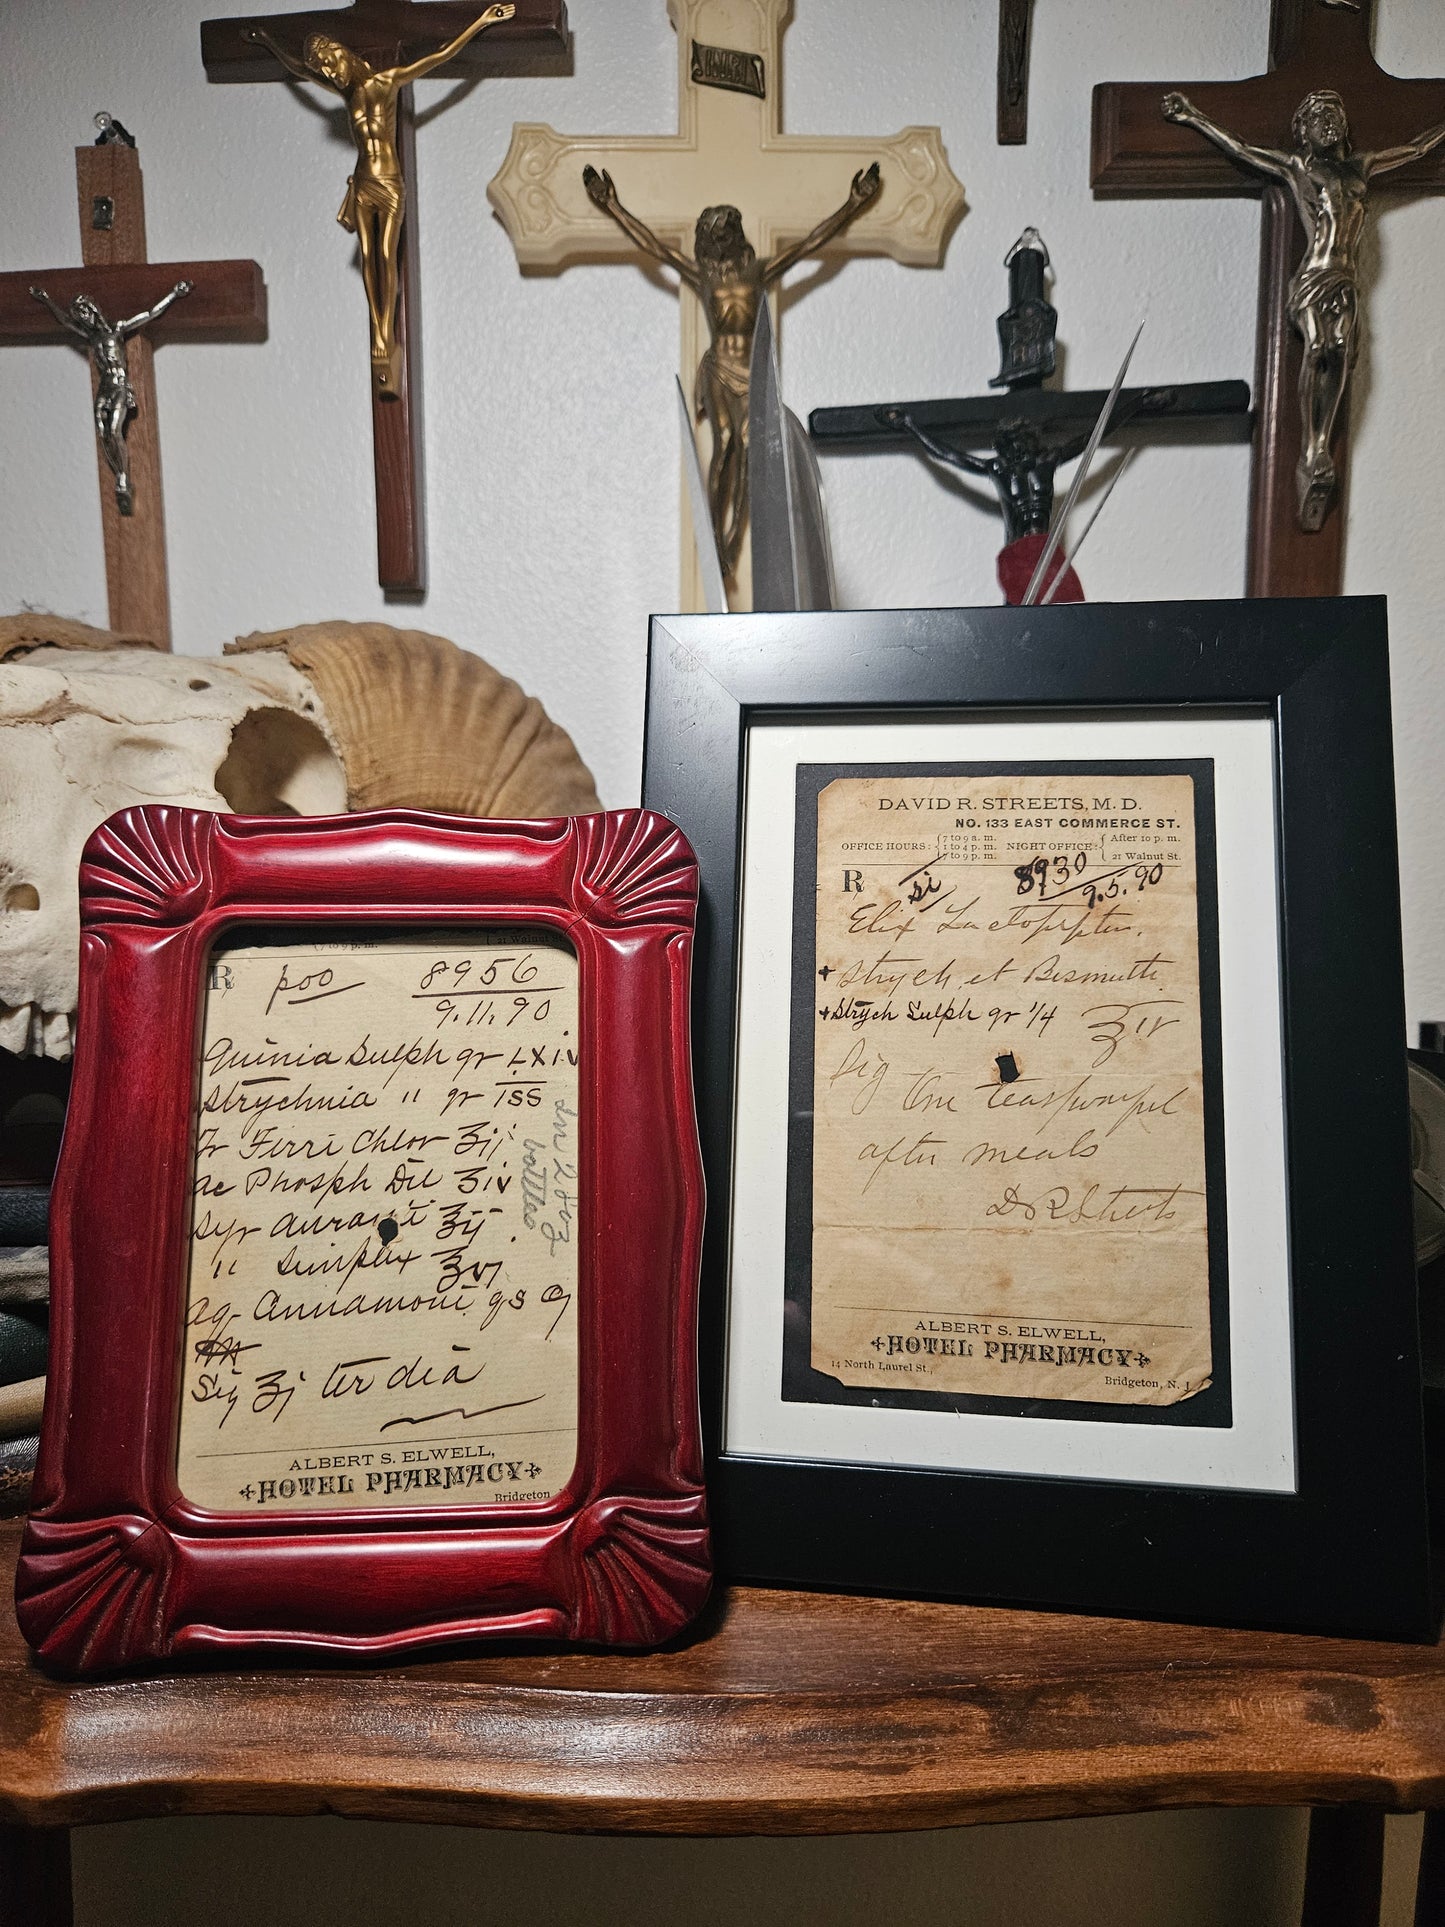 INRI
7 to 9 p. m.
21 Walnut St.
R poo 8956
9.11.90
Quinia Sulph gr LXiv
Strychnia " gr iss
Tr Ferri Chlor ʒij
ac Phosph Dil ʒiv
Syr Aurantii ℥ij
" Simplex ℥vj
Aq Cinnamoni qs
Sig ʒj ter dia
in 2
bottles
ALBERT S. ELWELL,
HOTEL PHARMACY
Bridgeton
DAVID R. STREETS, M. D.
NO. 133 EAST COMMERCE ST.
OFFICE HOURS: { 7 to 9 a. m. 1 to 4 p. m. 7 to 9 p. m. NIGHT OFFICE: { After 10 p. m. 21 Walnut St.
R 8930
9.5.90
Elix Lactopeptin,
+ Strych. et Bismuth.
+ Strych Sulph gr 1/4 ℥iv
Sig One teaspoonful
after meals
D R Streets
ALBERT S. ELWELL,
HOTEL PHARMACY
14 North Laurel St., Bridgeton, N. J.